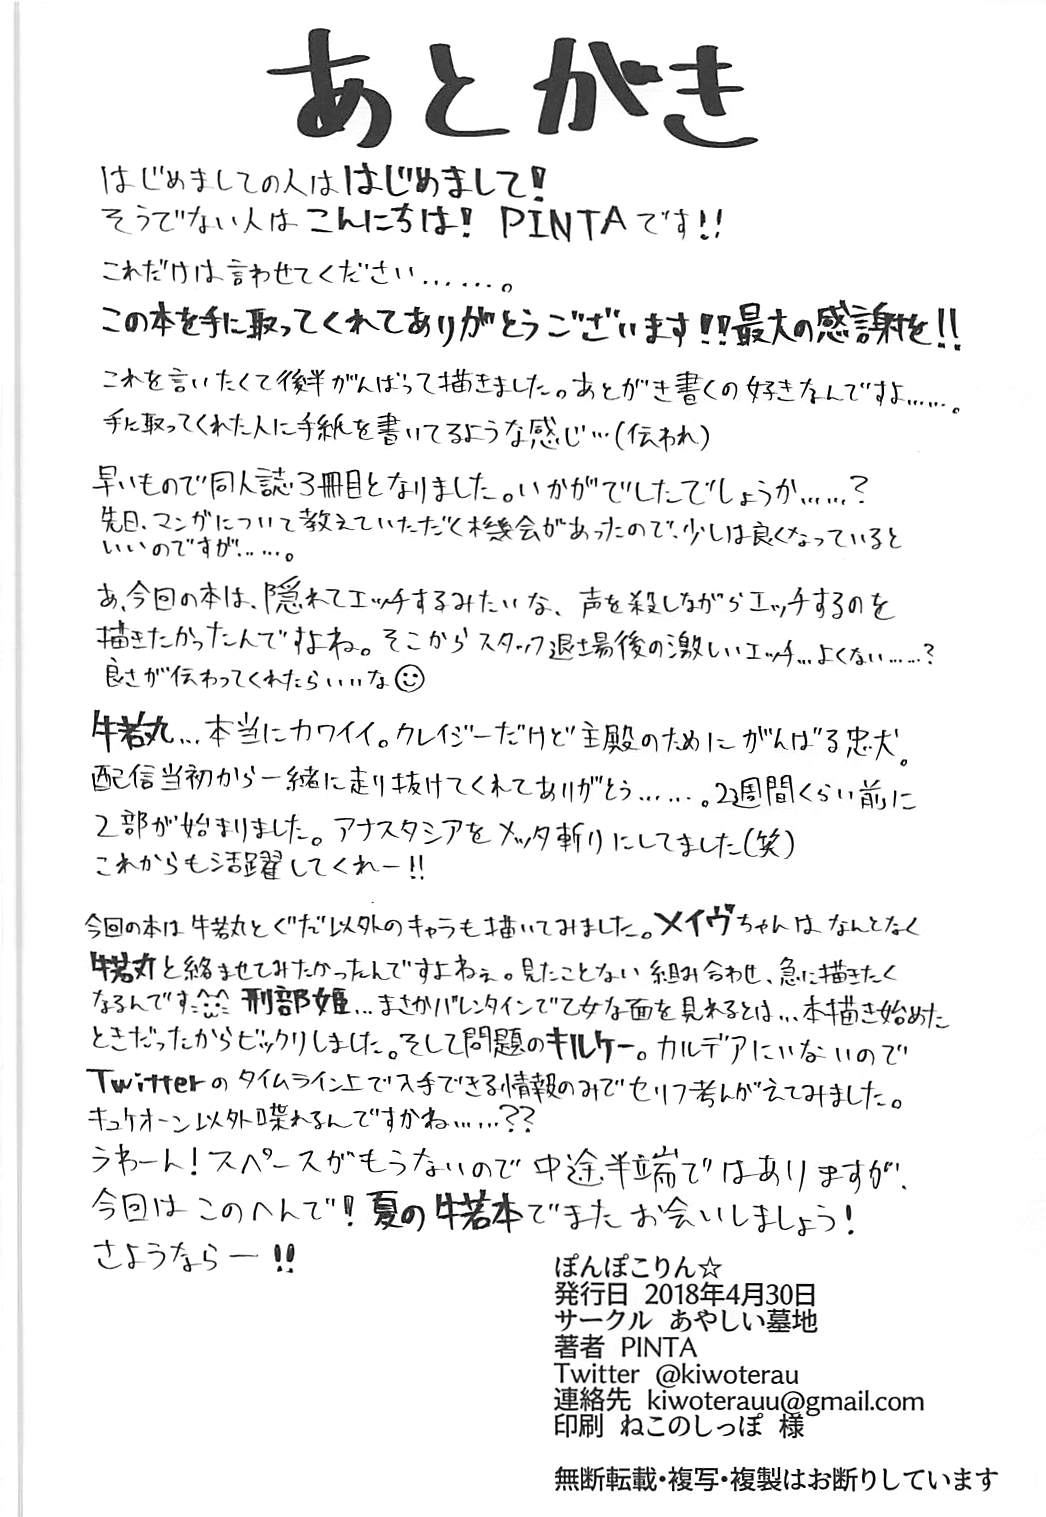 あとがき
はじめましての人ははじめまして!
そうでない人はこんにちは! PINTAです!!
これだけは言わせてください……。
この本を手に取ってくれてありがとうございます!!最大の感謝を!!
これを言いたくて後半がんばって描きました。あとがき書くの好きなんですよ……。
手に取ってくれた人に手紙を書いてるような感じ…(伝われ)
早いもので同人誌3冊目となりました。いかがでしたでしょうか……?
先日、マンガについて教えていただく機会があったので、少しは良くなっていると
いいのですが……。
あ、今回の本は、隠れてエッチするみたいな、声を殺しながらエッチするのを
描きたかったんですよね。そこからスタッフ退場後の激しいエッチ…よくない……?
良さが伝わってくれたらいいな☺
牛若丸…本当にカワイイ。クレイジーだけど主殿のためにがんばる忠犬。
配信当初から一緒に走り抜けてくれてありがとう……。2週間くらい前に
2部が始まりました。アナスタシアをメッタ斬りにしてました(笑)
これからも活躍してくれー!!
今回の本は牛若丸とぐだ以外のキャラも描いてみました。メイヴちゃんはなんとなく
牛若丸と絡ませてみたかったんですよねぇ。見たことない組み合わせ、急に描きたく
なるんです 刑部姫…まさかバレンタインで乙女な面を見れるとは…本描き始めた
ときだったからビックリしました。そして問題のキルケー。カルデアにいないので
Twitterのタイムライン上で入手できる情報のみでセリフ考えてみました。
キュケオーン以外喋れるんですかね……??
うわーん!スペースがもうないので中途半端ではありますが、
今回はこのへんで!夏の牛若本でまたお会いしましょう!
さようならー!!
ぽんぽこりん☆
発行日 2018年4月30日
サークル あやしい墓地
著者 PINTA
Twitter @kiwoterau
連絡先 kiwoterauu@gmail.com
印刷 ねこのしっぽ 様
無断転載・複写・複製はお断りしています